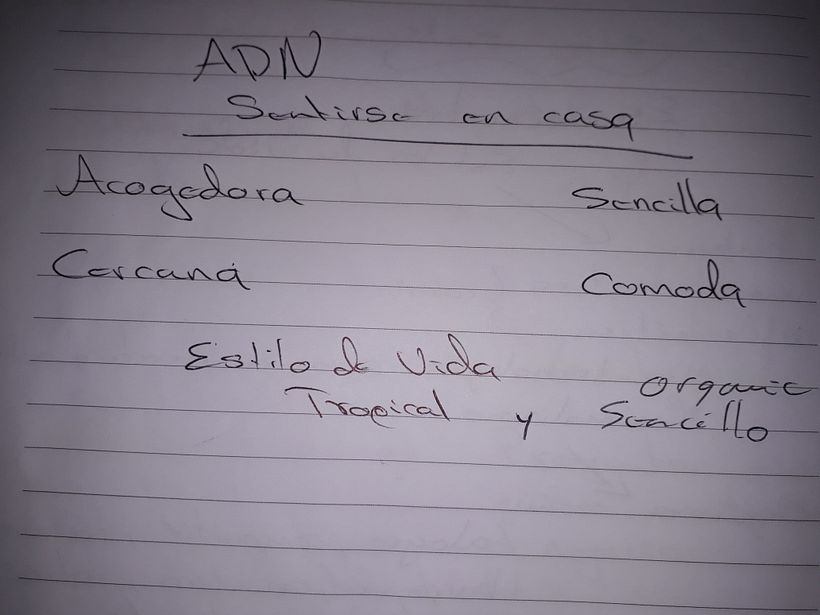 ADN
Sentirse en casa
Acogedora Sencilla
Cercana Comoda
Estilo de Vida
Organic
Tropical y Sencillo